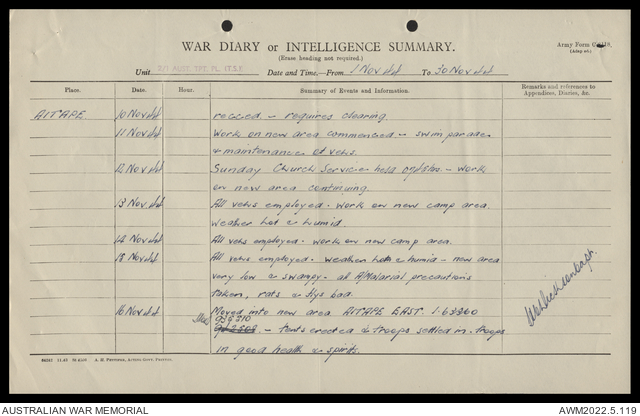 WAR DIARY or INTELLIGENCE SUMMARY.
Army Form
(Erase heading not required.)
Unit 2/1 AUST. TPT. PL. Date and Time—From 1 Nov 44 To 30 Nov 44
Place. Date. Hour. Summary of Events and Information. Remarks and references to Appendices, Diaries, &c.
AITAPE 10 Nov 44 recced - requires clearing.
11 Nov 44 Work on new area commenced - swim parade
& maintenance of vehs.
12 Nov 44 Sunday Church Service held - work
on new area continuing.
13 Nov 44 All vehs employed. Work on new camp area.
Weather hot & humid.
14 Nov 44 All vehs employed. Work on new camp area.
15 Nov 44 All vehs employed. Weather hot & humid - new area
very low & swampy. all A/Malarial precautions
taken, rats & flys bad.
16 Nov 44 Moved into new area AITAPE EAST. 1-63360
936310
- Tents erected & troops settled in. Troops
in good health & spirits.
AUSTRALIAN WAR MEMORIAL
AWM2022.5.119